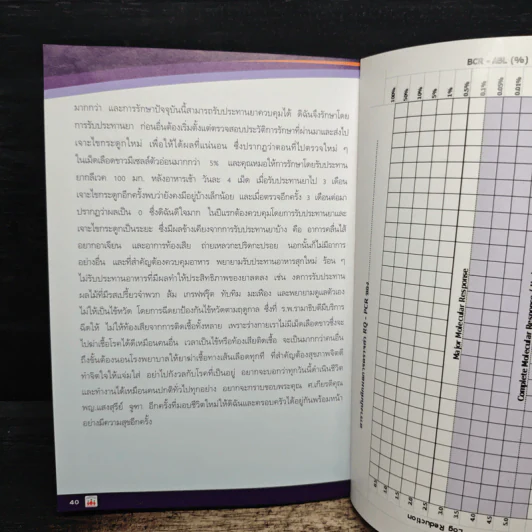 มากกว่า และการรักษาปัจจุบันนี้สามารถรับประทานยาควบคุมได้ ดิฉันจึงรักษาโดย
การรับประทานยา ก่อนอื่นต้องเริ่มตั้งแต่ตรวจสอบประวัติการรักษาที่ผ่านมาและส่งไป
เจาะไขกระดูกใหม่ เพื่อให้ได้ผลที่แน่นอน ซึ่งปรากฏว่าตอนที่ไปตรวจใหม่ ๆ
ในเม็ดเลือดขาวมีเซลล์ตัวอ่อนมากกว่า 5% และคุณหมอให้การรักษาโดยรับประทาน
ยากลีเวค 100 มก. หลังอาหารเช้า วันละ 4 เม็ด เมื่อรับประทานยาไป 3 เดือน
เจาะไขกระดูกอีกครั้งพบว่ายังคงมีอยู่บ้างเล็กน้อย และเมื่อตรวจอีกครั้ง 3 เดือนต่อมา
ปรากฏว่าผลเป็น 0 ซึ่งดิฉันดีใจมาก ในปีแรกต้องควบคุมโดยการรับประทานยาและ
เจาะไขกระดูกเป็นระยะ ซึ่งมีผลข้างเคียงจากการรับประทานยาบ้าง คือ อาการคลื่นไส้
อยากอาเจียน และอาการท้องเสีย ถ่ายเหลวกะปริดกะปรอย นอกนั้นก็ไม่มีอาการ
อย่างอื่น และที่สำคัญต้องควบคุมอาหาร พยายามรับประทานอาหารสุกใหม่ ร้อน ๆ
ไม่รับประทานอาหารที่มีผลทำให้ประสิทธิภาพของยาลดลง เช่น งดการรับประทาน
ผลไม้ที่มีรสเปรี้ยวจำพวก ส้ม เกรฟฟรุ๊ต ทับทิม มะเฟือง และพยายามดูแลตัวเอง
ไม่ให้เป็นไข้หวัด โดยการฉีดยาป้องกันไข้หวัดตามฤดูกาล ซึ่งที่ ร.พ.รามาธิบดีมีบริการ
ฉีดให้ ไม่ให้ท้องเสียจากการติดเชื้อทั้งหลาย เพราะร่างกายเราไม่มีเม็ดเลือดขาวซึ่งจะ
ไปฆ่าเชื้อโรคได้ดีเหมือนคนอื่น เวลาเป็นไข้หรือท้องเสียติดเชื้อ จะเป็นมากกว่าคนอื่น
ถึงขั้นต้องนอนโรงพยาบาลให้ยาฆ่าเชื้อทางเส้นเลือดทุกที ที่สำคัญต้องสุขภาพจิตดี
ทำจิตใจให้แจ่มใส อย่าไปกังวลกับโรคที่เป็นอยู่ อยากจะบอกว่าทุกวันนี้ดำเนินชีวิต
และทำงานได้เหมือนคนปกติทั่วไปทุกอย่าง อยากจะกราบขอบพระคุณ ศ.เกียรติคุณ
พญ.แสงสุรีย์ จูฑา อีกครั้งที่มอบชีวิตใหม่ให้ดิฉันและครอบครัวได้อยู่กันพร้อมหน้า
อย่างมีความสุขอีกครั้ง
40
BCR - ABL (%)
100%
10%
5%
1%
0.5%
0.1%
0.05%
0.01%
Major Molecular Response
Complete Molecular Response
0.5
1.0
1.5
2.0
2.5
3.0
3.5
4.0
4.5
5.0
Log Reduction